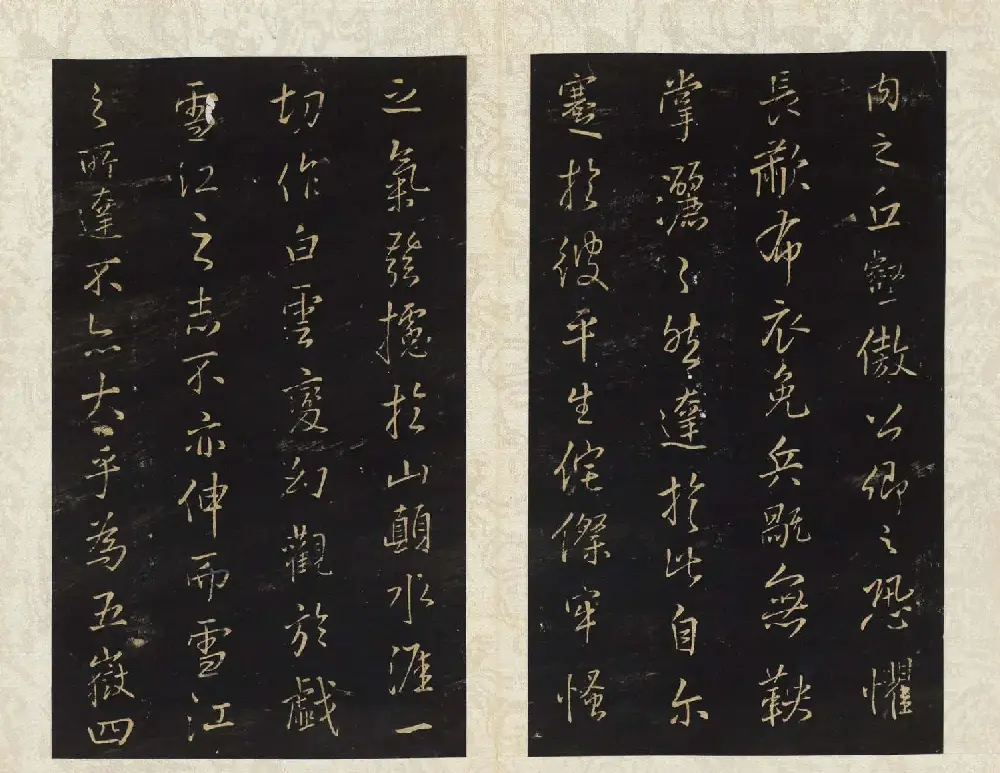 内之丘壑傲公卿之恐懼
長歗布衣免兵無鞅
掌灑々然達於此自尔
蹇於彼平生侘傺牢慅
之氣發攄於山顛水涯一
切作白雲變幻觀於戲
雪江之志不亦伸而雪江
之所達不亦大乎為五嶽四